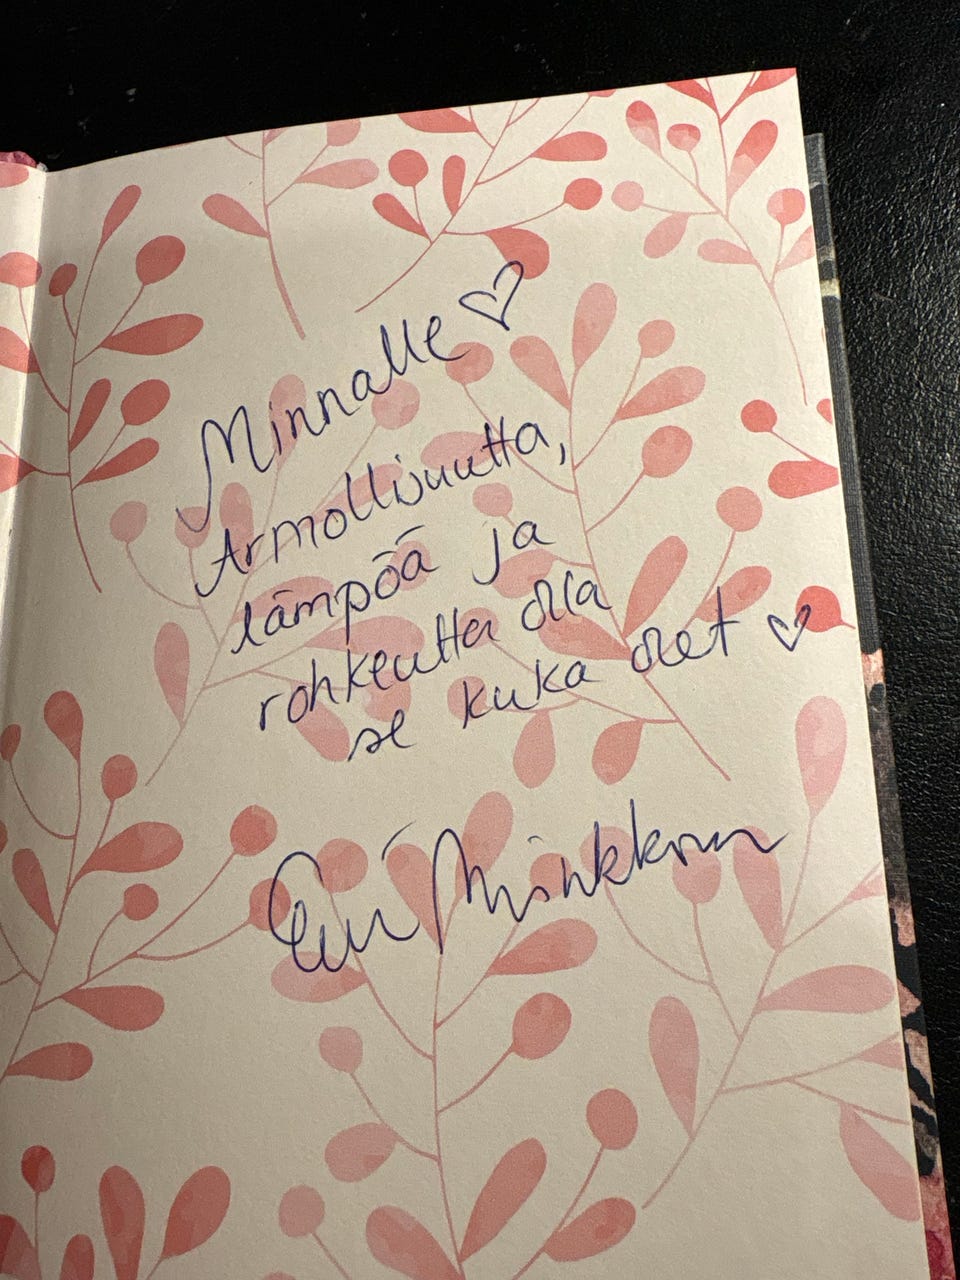 Minnalle ♡
Armollisuutta,
lämpöä ja
rohkeutta olla
se kuka olet ♡
Eevi Minkkinen